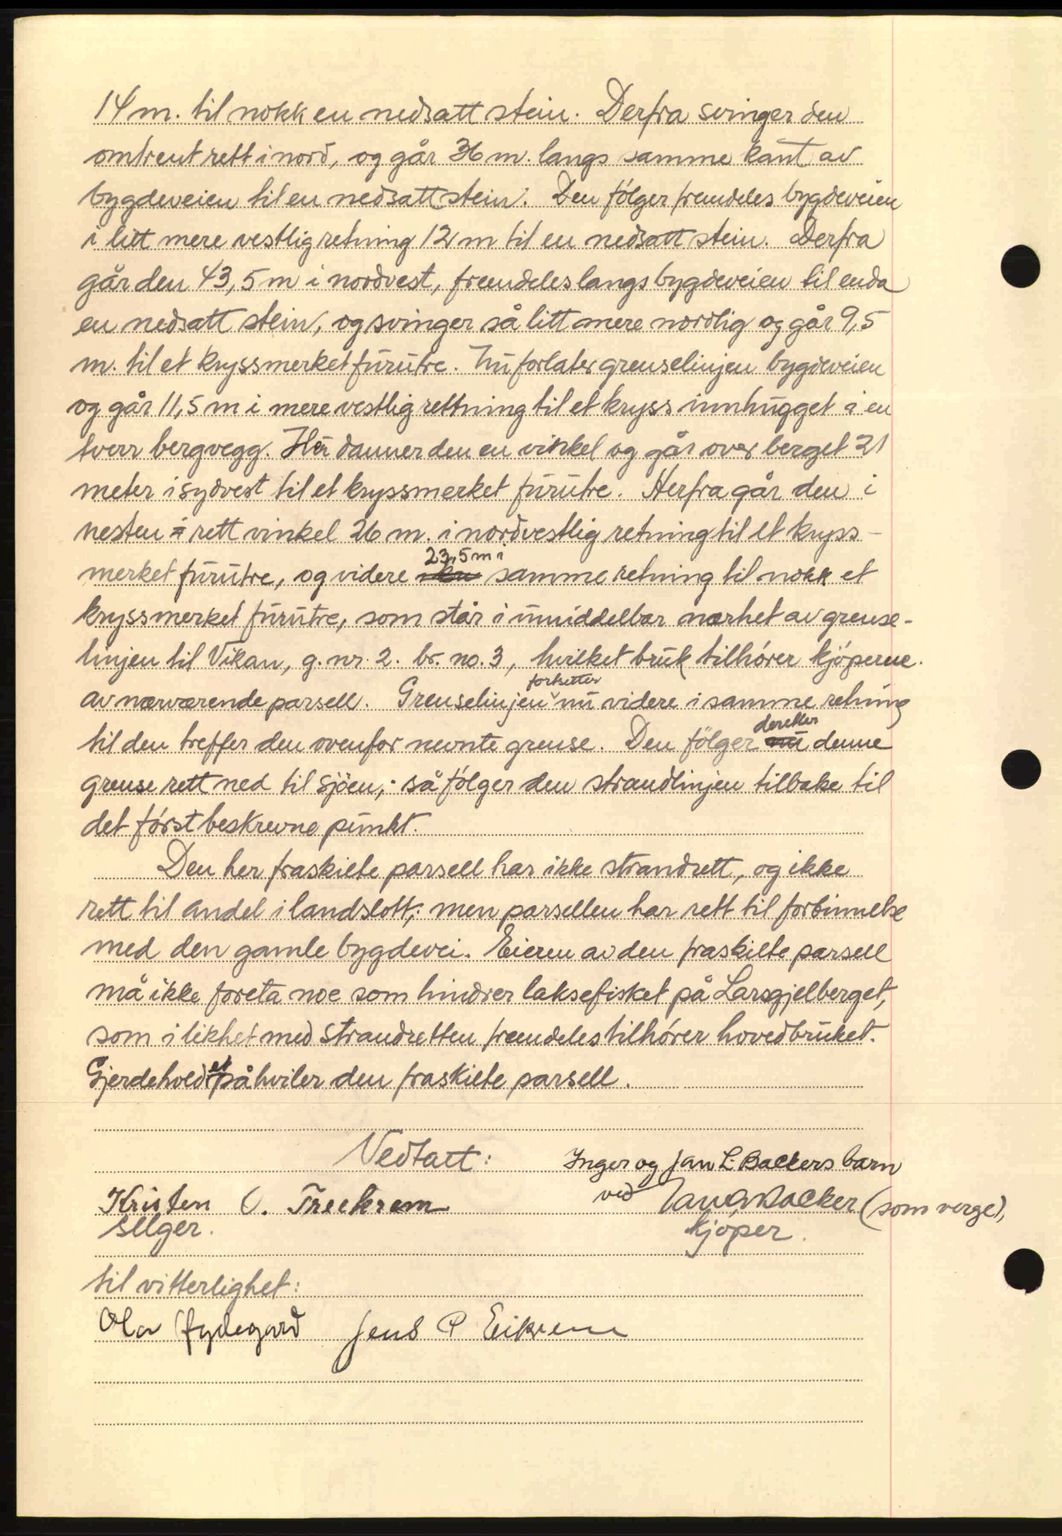 14 m. til nokk en nedsatt stein. Derfra svinger den
omtrent rett i nord, og går 36 m. langs samme kant av
bygdeveien til en nedsatt stein. Den følger fremdeles bygdeveien
i litt mere vestlig retning 12 m til en nedsatt stein. Derfra
går den 43,5 m i nordvest, fremdeles langs bygdeveien til enda
en nedsatt stein, og svinger så litt mere nordlig og går 9,5
m. til et kryssmerket furutre. Nu forlater grenselinjen bygdeveien
og går 11,5 m i mere vestlig rettning til et kryss innhugget i en
tverr bergvegg. Her danner den en vinkel og går over berget 21
meter i sydvest til et kryssmerket furutre. Herfra går den i
nesten rett vinkel 26 m. i nordvestlig retning til et kryss-
merket furutre, og videre 23,5 m i samme retning til nokk et
kryssmerket furutre, som står i umiddelbar nærhet av grense-
linjen til Vikan, g. nr. 2. br. no. 3, hvilket bruk tilhører kjøperne
av nærværende parsell. Grenselinjen fortsetter nu videre i samme retning
til den treffer den ovenfor nevnte grense. Den følger deretter denne
grense rett ned til sjøen, så følger den strandlinjen tilbake til
det først beskrevne punkt.
Den her fraskilte parsell har ikke strandrett, og ikke
rett til andel i landslott, men parsellen har rett til forbinnelse
med den gamle bygdevei. Eieren av den fraskilte parsell
må ikke foreta noe som hindrer laksefisket på Larsgjelberget,
som i likhet med strandretten fremdeles tilhører hovedbruket.
Gjerdeholdet påhviler den fraskilte parsell.
Vedtatt: Inger og Jan L. Backers barn
Kristen O. Treekrem ved Jan Backer (som verge),
selger. kjøper.
til vitterlighet:
Ola Øydegard Jens P Eikrem